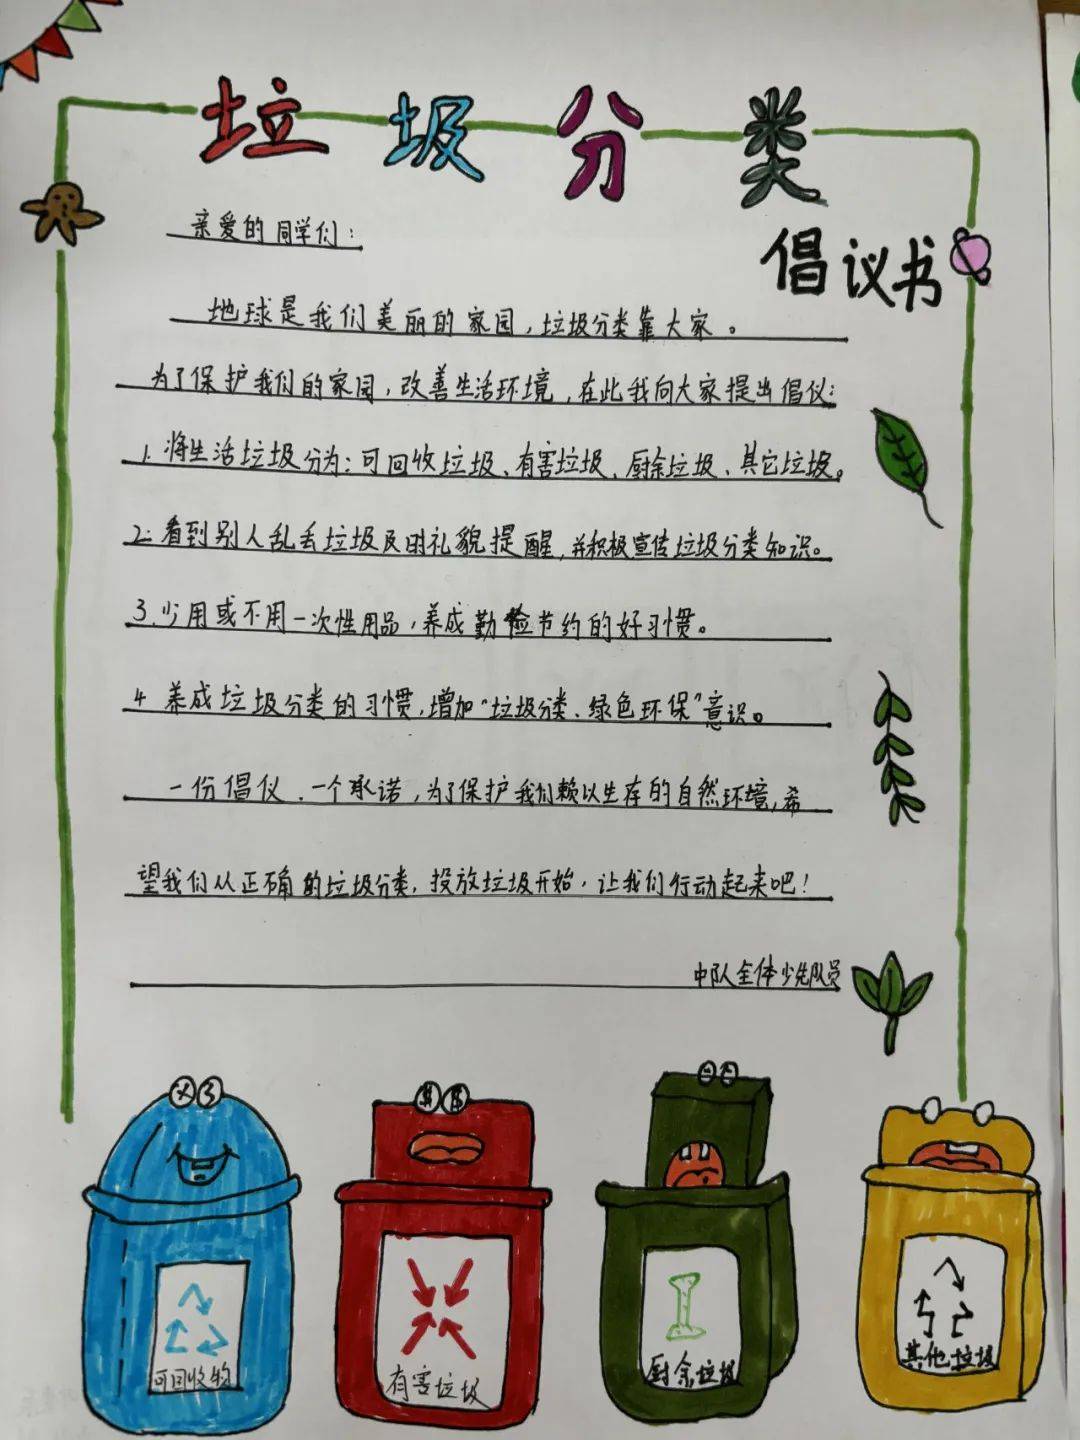 垃圾分类
倡议书
亲爱的同学们：
地球是我们美丽的家园，垃圾分类靠大家。
为了保护我们的家园，改善生活环境，在此我向大家提出倡仪：
1.将生活垃圾分为：可回收垃圾、有害垃圾、厨余垃圾、其它垃圾。
2.看到别人乱丢垃圾及时礼貌提醒，并积极宣传垃圾分类知识。
3.少用或不用一次性用品，养成勤俭节约的好习惯。
4 养成垃圾分类的习惯，增加“垃圾分类、绿色环保”意识。
一份倡仪、一个承诺，为了保护我们赖以生存的自然环境，希
望我们从正确的垃圾分类，投放垃圾开始，让我们行动起来吧！
中队全体少先队员
可回收物
有害垃圾
厨余垃圾
其他垃圾